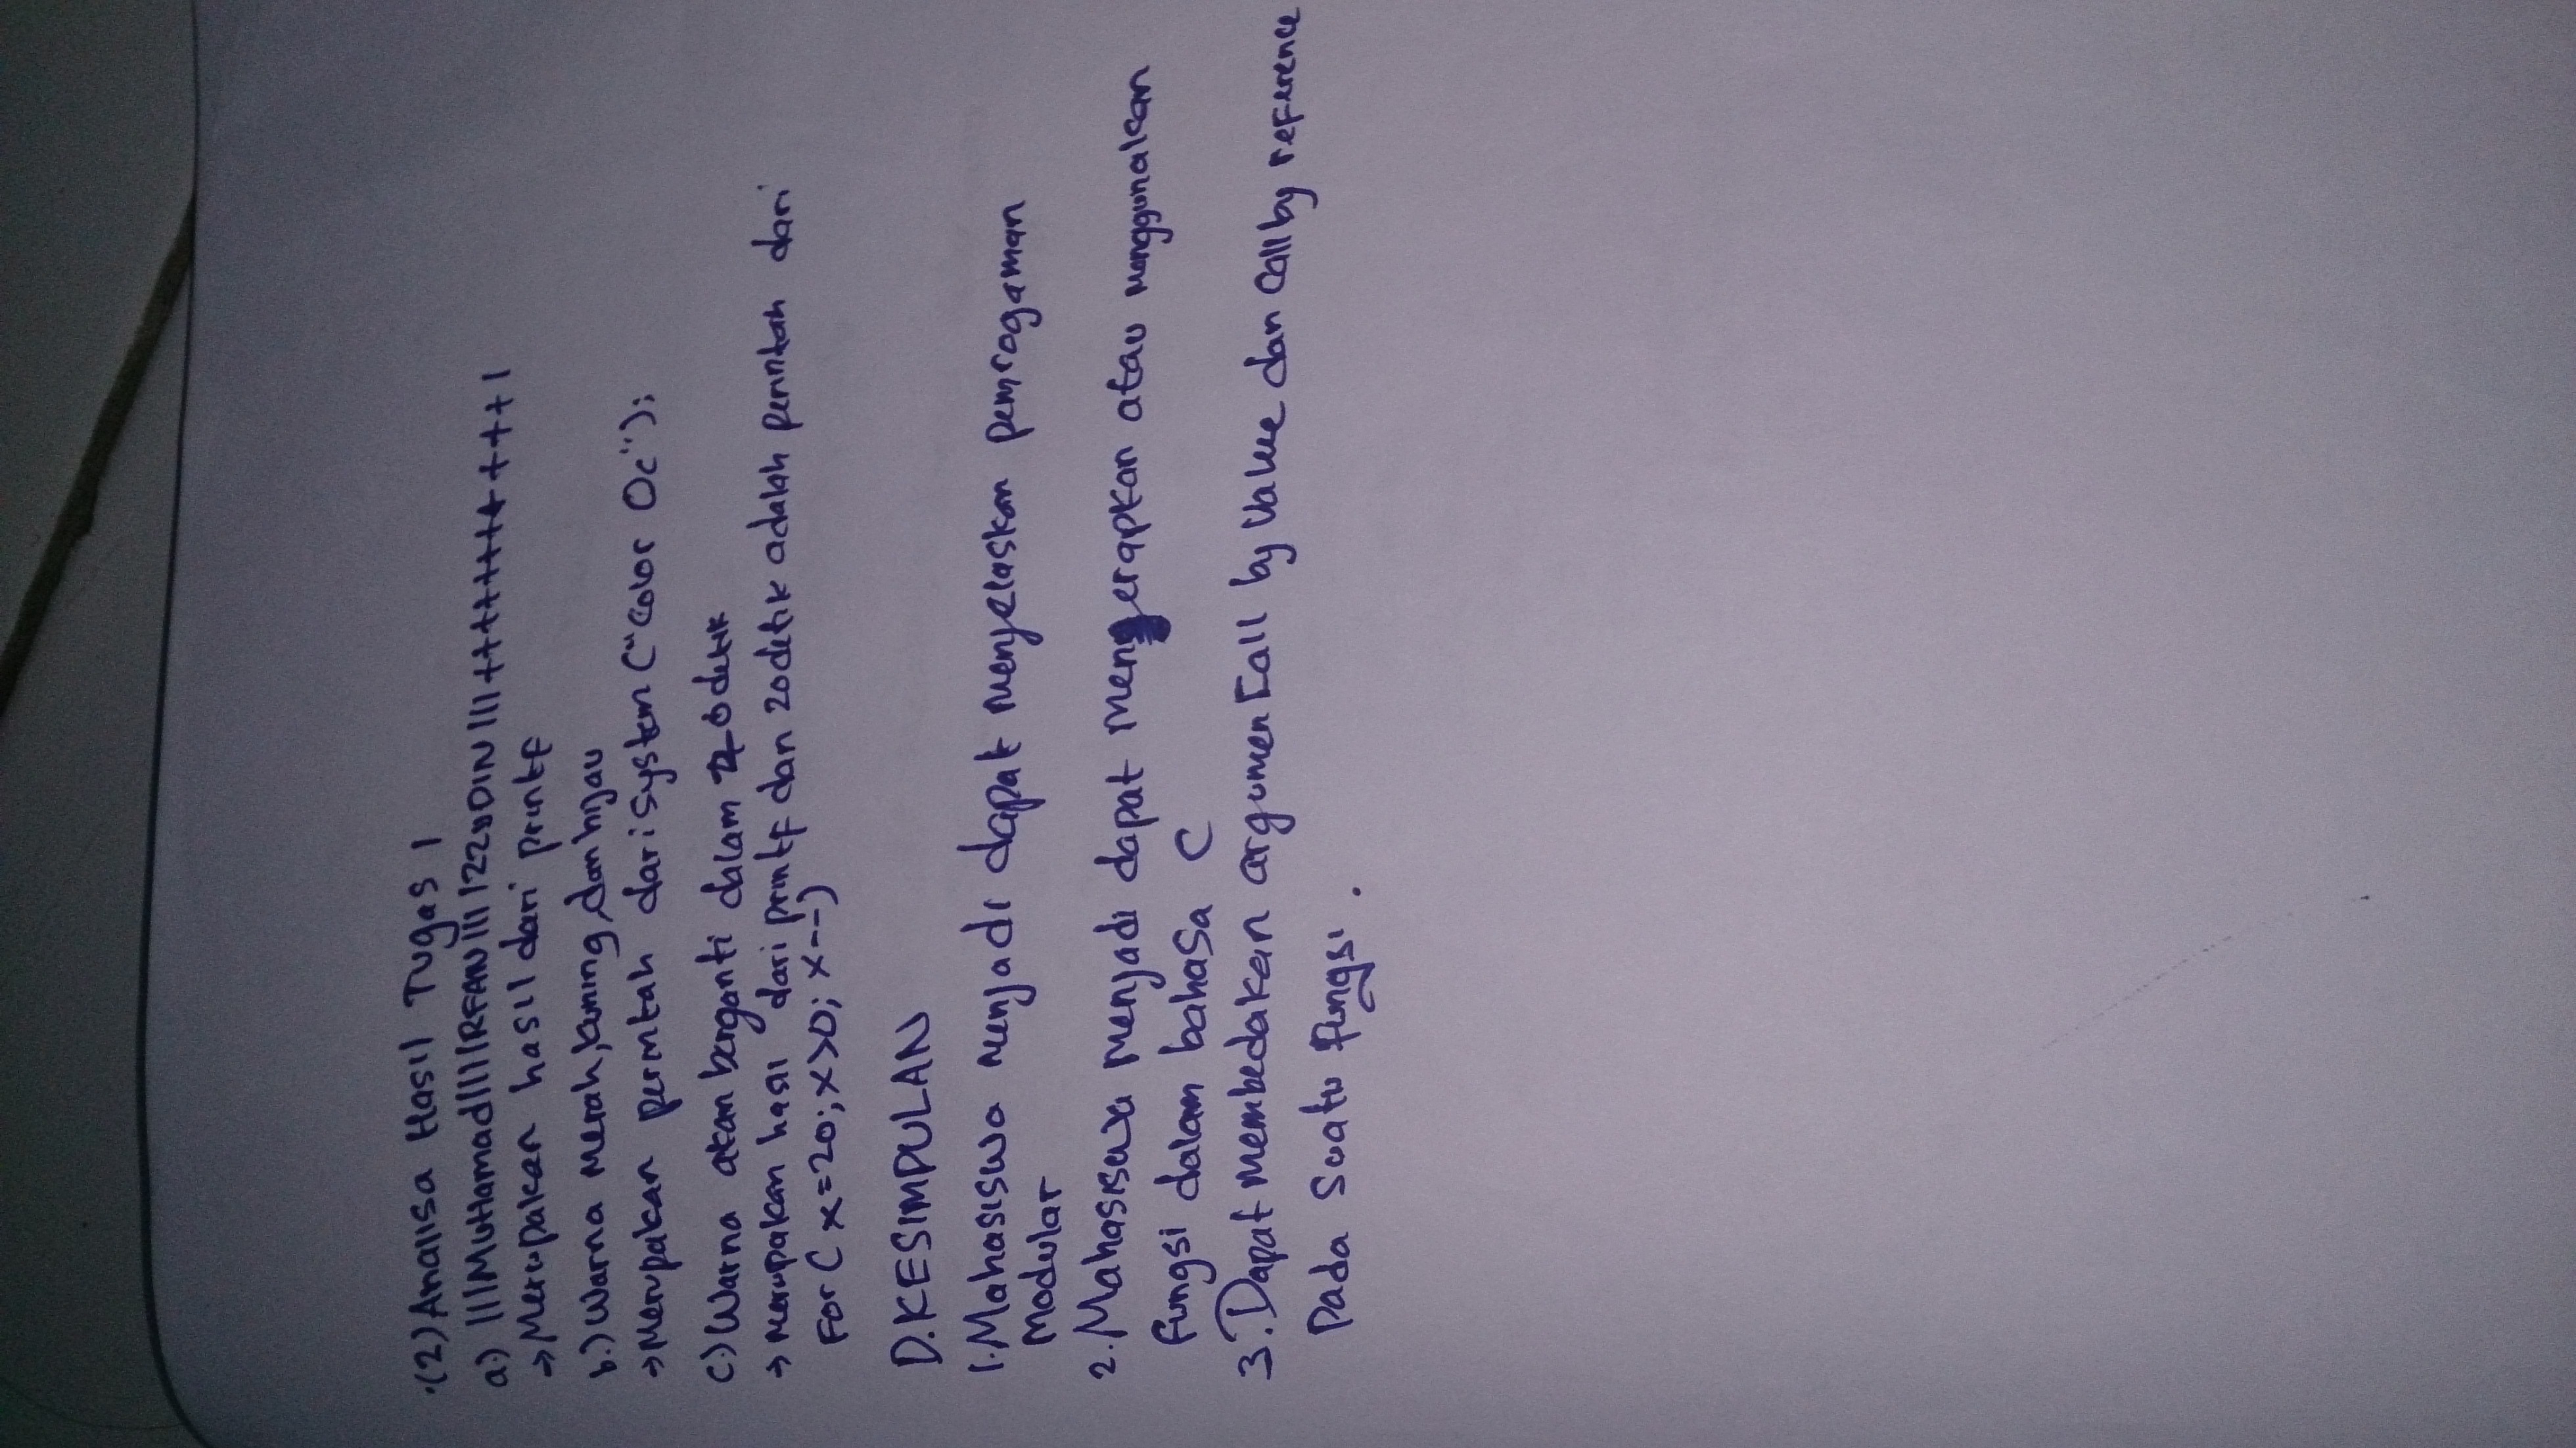 .(2) Analisa Hasil Tugas 1
a.) |||MuHamad||||RFAN||||ZZUDIN|||++++++++++++|
→ Merupakan hasil dari printf
b.) warna merah, kuning, dan hijau
→ Merupakan perintah dari system ("color 0c");
c.) Warna akan berganti dalam detik
→ merupakan hasil dari printf dan 20 detik adalah perintah dari
For ( x=20; x>0; x--)
D. KESIMPULAN
1. Mahasiswa menjadi dapat menjelaskan pemrogaman
Modular
2. Mahasiswa menjadi dapat menerapkan atau menggunakan
fungsi dalam bahasa C
3. Dapat membedakan argumen Call by Value dan Call by reference
Pada Suatu fungsi.